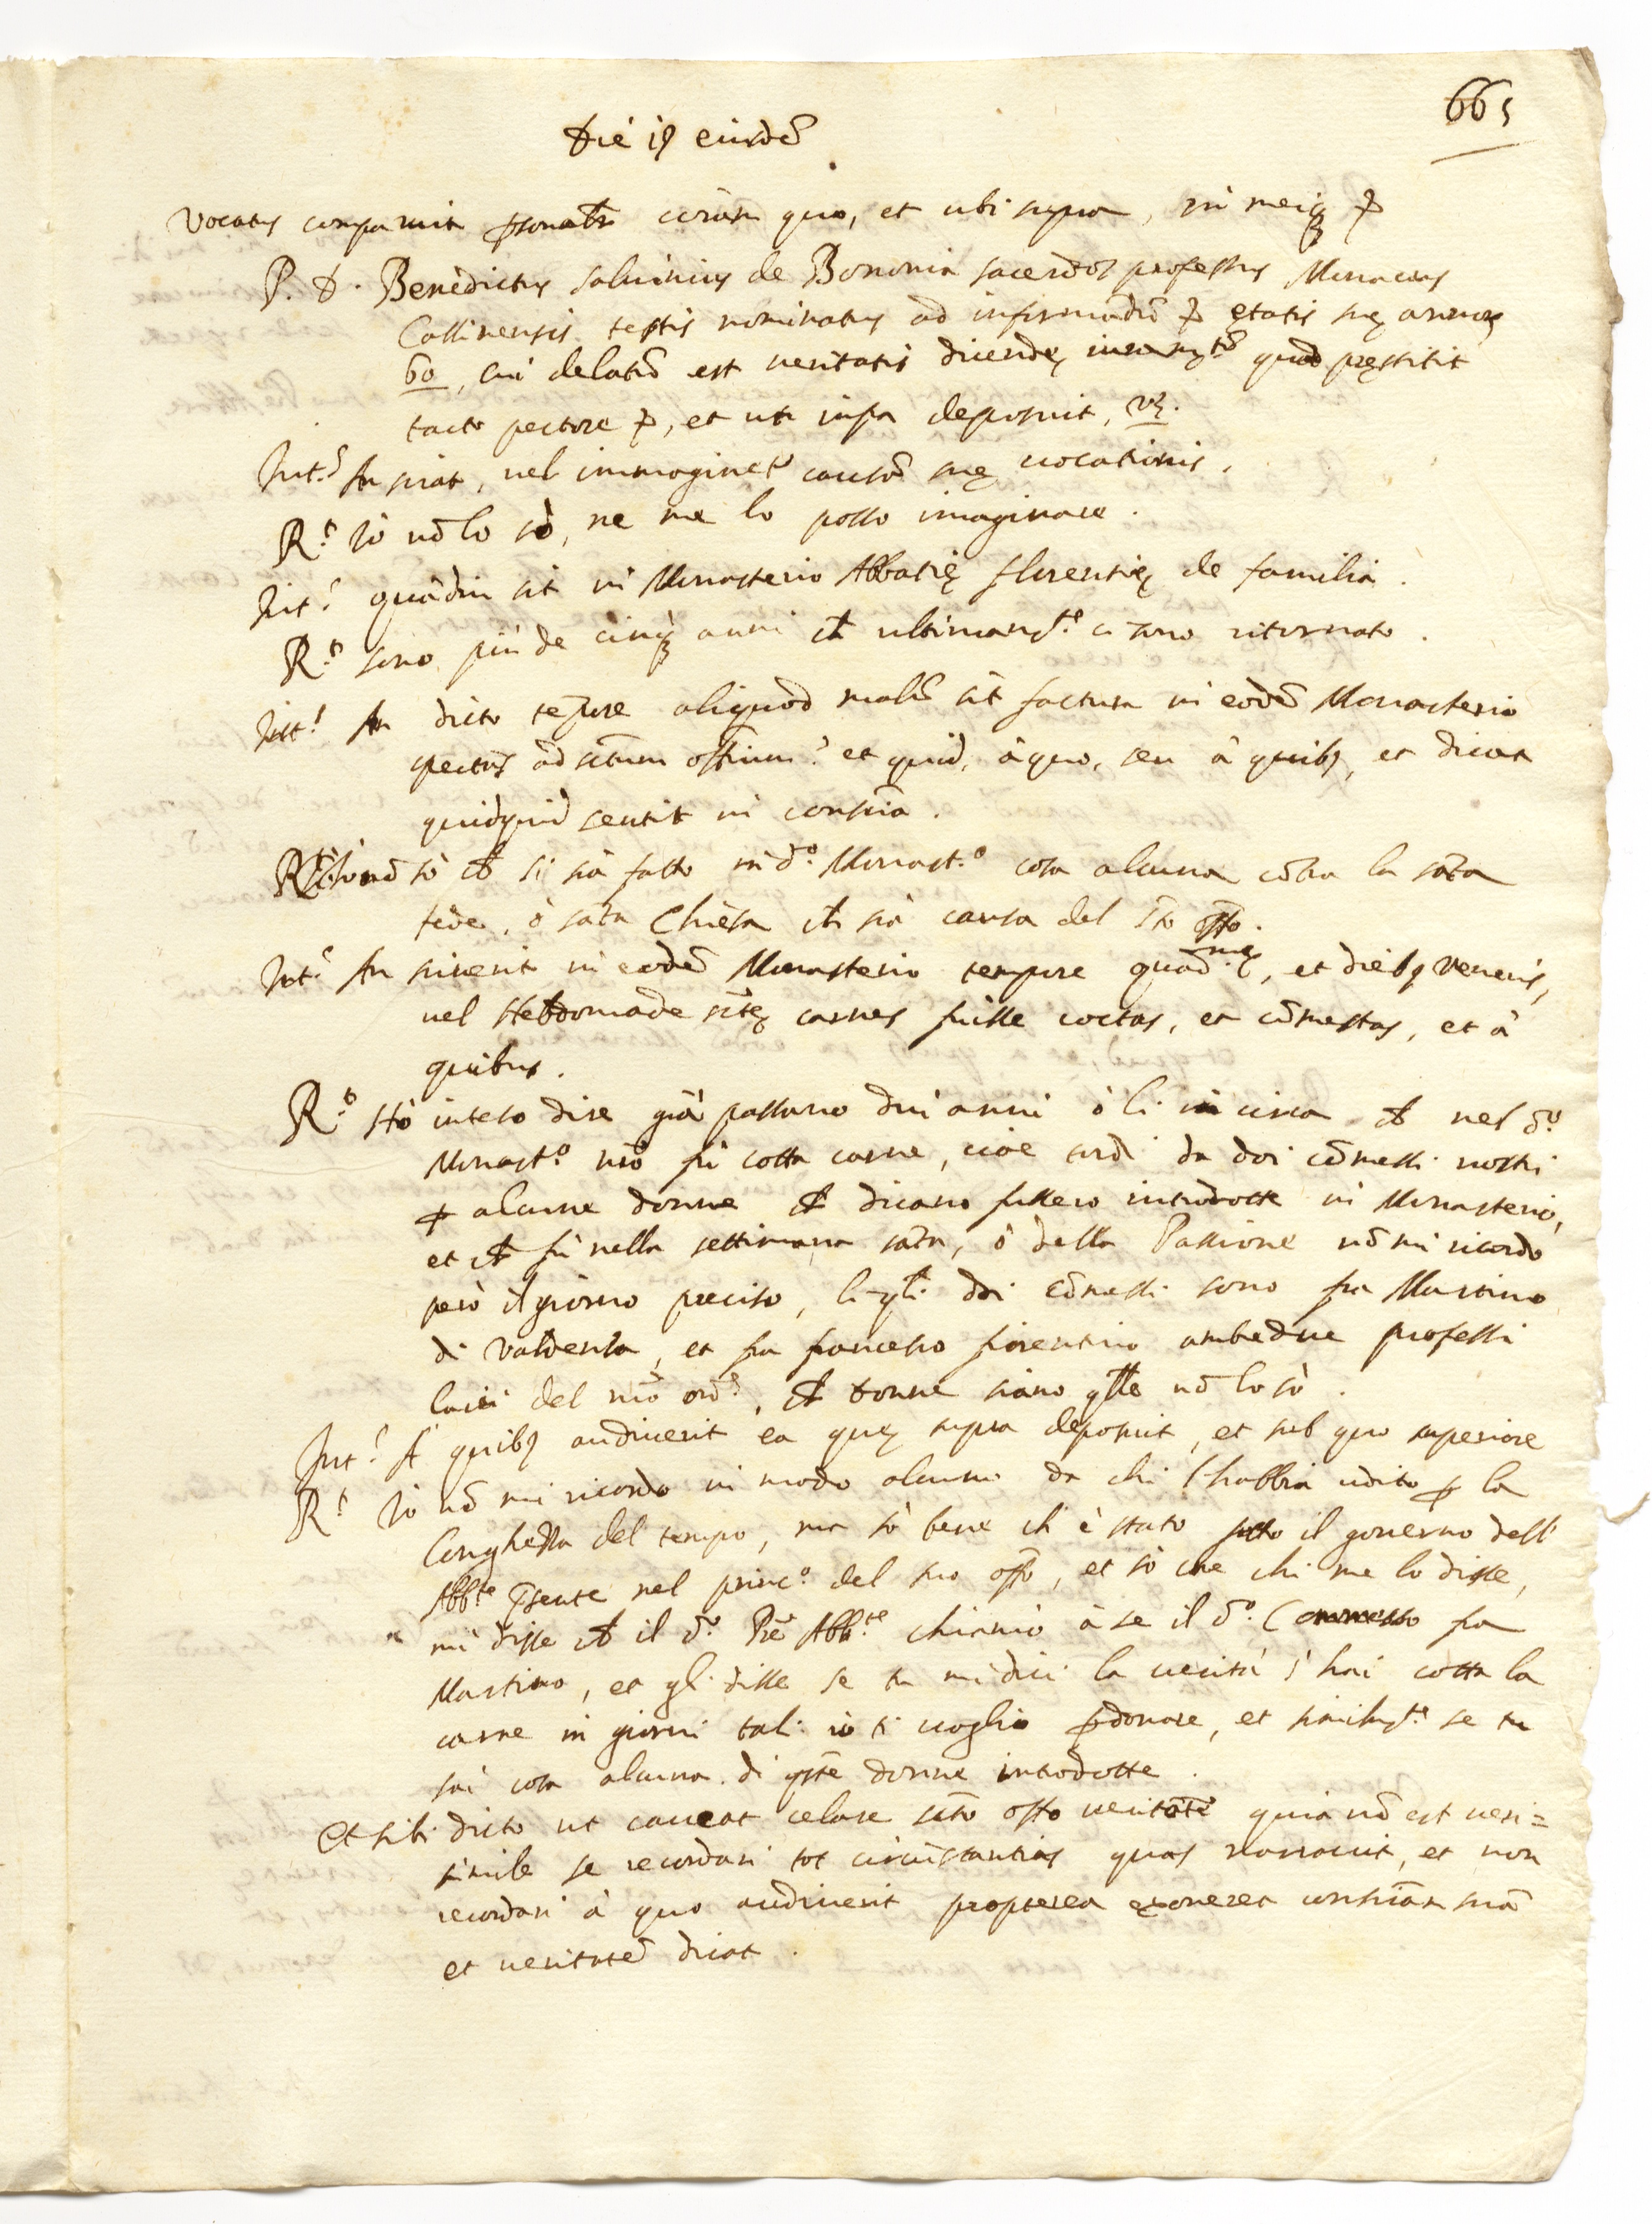 665
Die 19 eiusdē
Vocatus comparuit psonalr corām quo, et ubi supra, in meiq; &
P. D. Benedictus saluinius de Bononia sacerdos professus Monacus
Cassinensis testis nominatus ad informandū & ętatis suę annorꝫ
60, cui delatō est veritatis dicendę iuramtō quod pręstitit
tacto pectore &, et uti infra deposuit, vꝫ.
Intˢ An sciat, vel immaginetʳ causā suę vocationis.
Rᵗ Io nō lo sò, ne me lo posso imaginare.
Intˢ quādiu sit in Monasterio Abbatię florentię de familia.
Rᵗ sono più de cinq; anni ch ultimamᵗᵉ ci sono ritornato.
Intˢ An dicto tēpore aliquod malū sit factum in eodē Monasterio
spectās ad sctum offium? et quid, à quo, seu à quibꝫ, et dicat
quidquid sentit in consciā.
Rᵗ Io nō sò ch si sia fatto in dᵒ Monastᵒ cosa alcuna cōtra la sāta
fede, ò sāta Chiesa ch sia causa del Sto offo.
Intˢ An sciuerit in eodē Monasterio tempore quadmę, et diebꝫ Veneris,
vel Hebdomade sctę carnes fuisse coctas, et cōmestas, et à
quibus.
Rᵗ Hò inteso dire già passano dui anni ò lì in circa ch nel dᵒ
Monastᵒ nrō fù cotta carne, cioè tordi da doi cōmessi nostri
p alcune donne ch dicano fussero introdotte in Monasterio,
et ch fù nella settimana sāta, ò della Passione nō mi ricordo
però il giorno preciso, li qli doi cōmessi sono fra Martino
di Valdensa, et fra francesco fiorentino ambedue professi
laici del nrō ordᵉ, ch donne siano qlle nō lo sò.
Intˢ A quibꝫ audiuerit ea quę supra deposuit, et sub quo superiore
Rᵗ Io nō mi ricordo in modo alcuno da chi l'habbia udito p la
longhezza del tempo, ma sò bene ch è stato sotto il gouerno dell'
Abbᵗᵉ psente nel princᵒ del suo offo, et sò che chi me lo disse,
mi disse ch il dᵒ Prē Abbᵗᵉ chiamò à se il dᵒ Commesso fra
Martino, et gli disse se tu mi dici la uerità s'hai cotta la
carne in giorni tali io ti uoglio pdonare, et similmᵗᵉ se tu
sai cosa alcuna di qste donne introdotte.
Et sibi dicto ut caueat celare scto offo ueritatē quia nō est ueri=
simile se recordari tot circūstantias quas narrauit, et non
recordari à quo audiuerit propterea exoneret consciam suā
et ueritatē dicat.